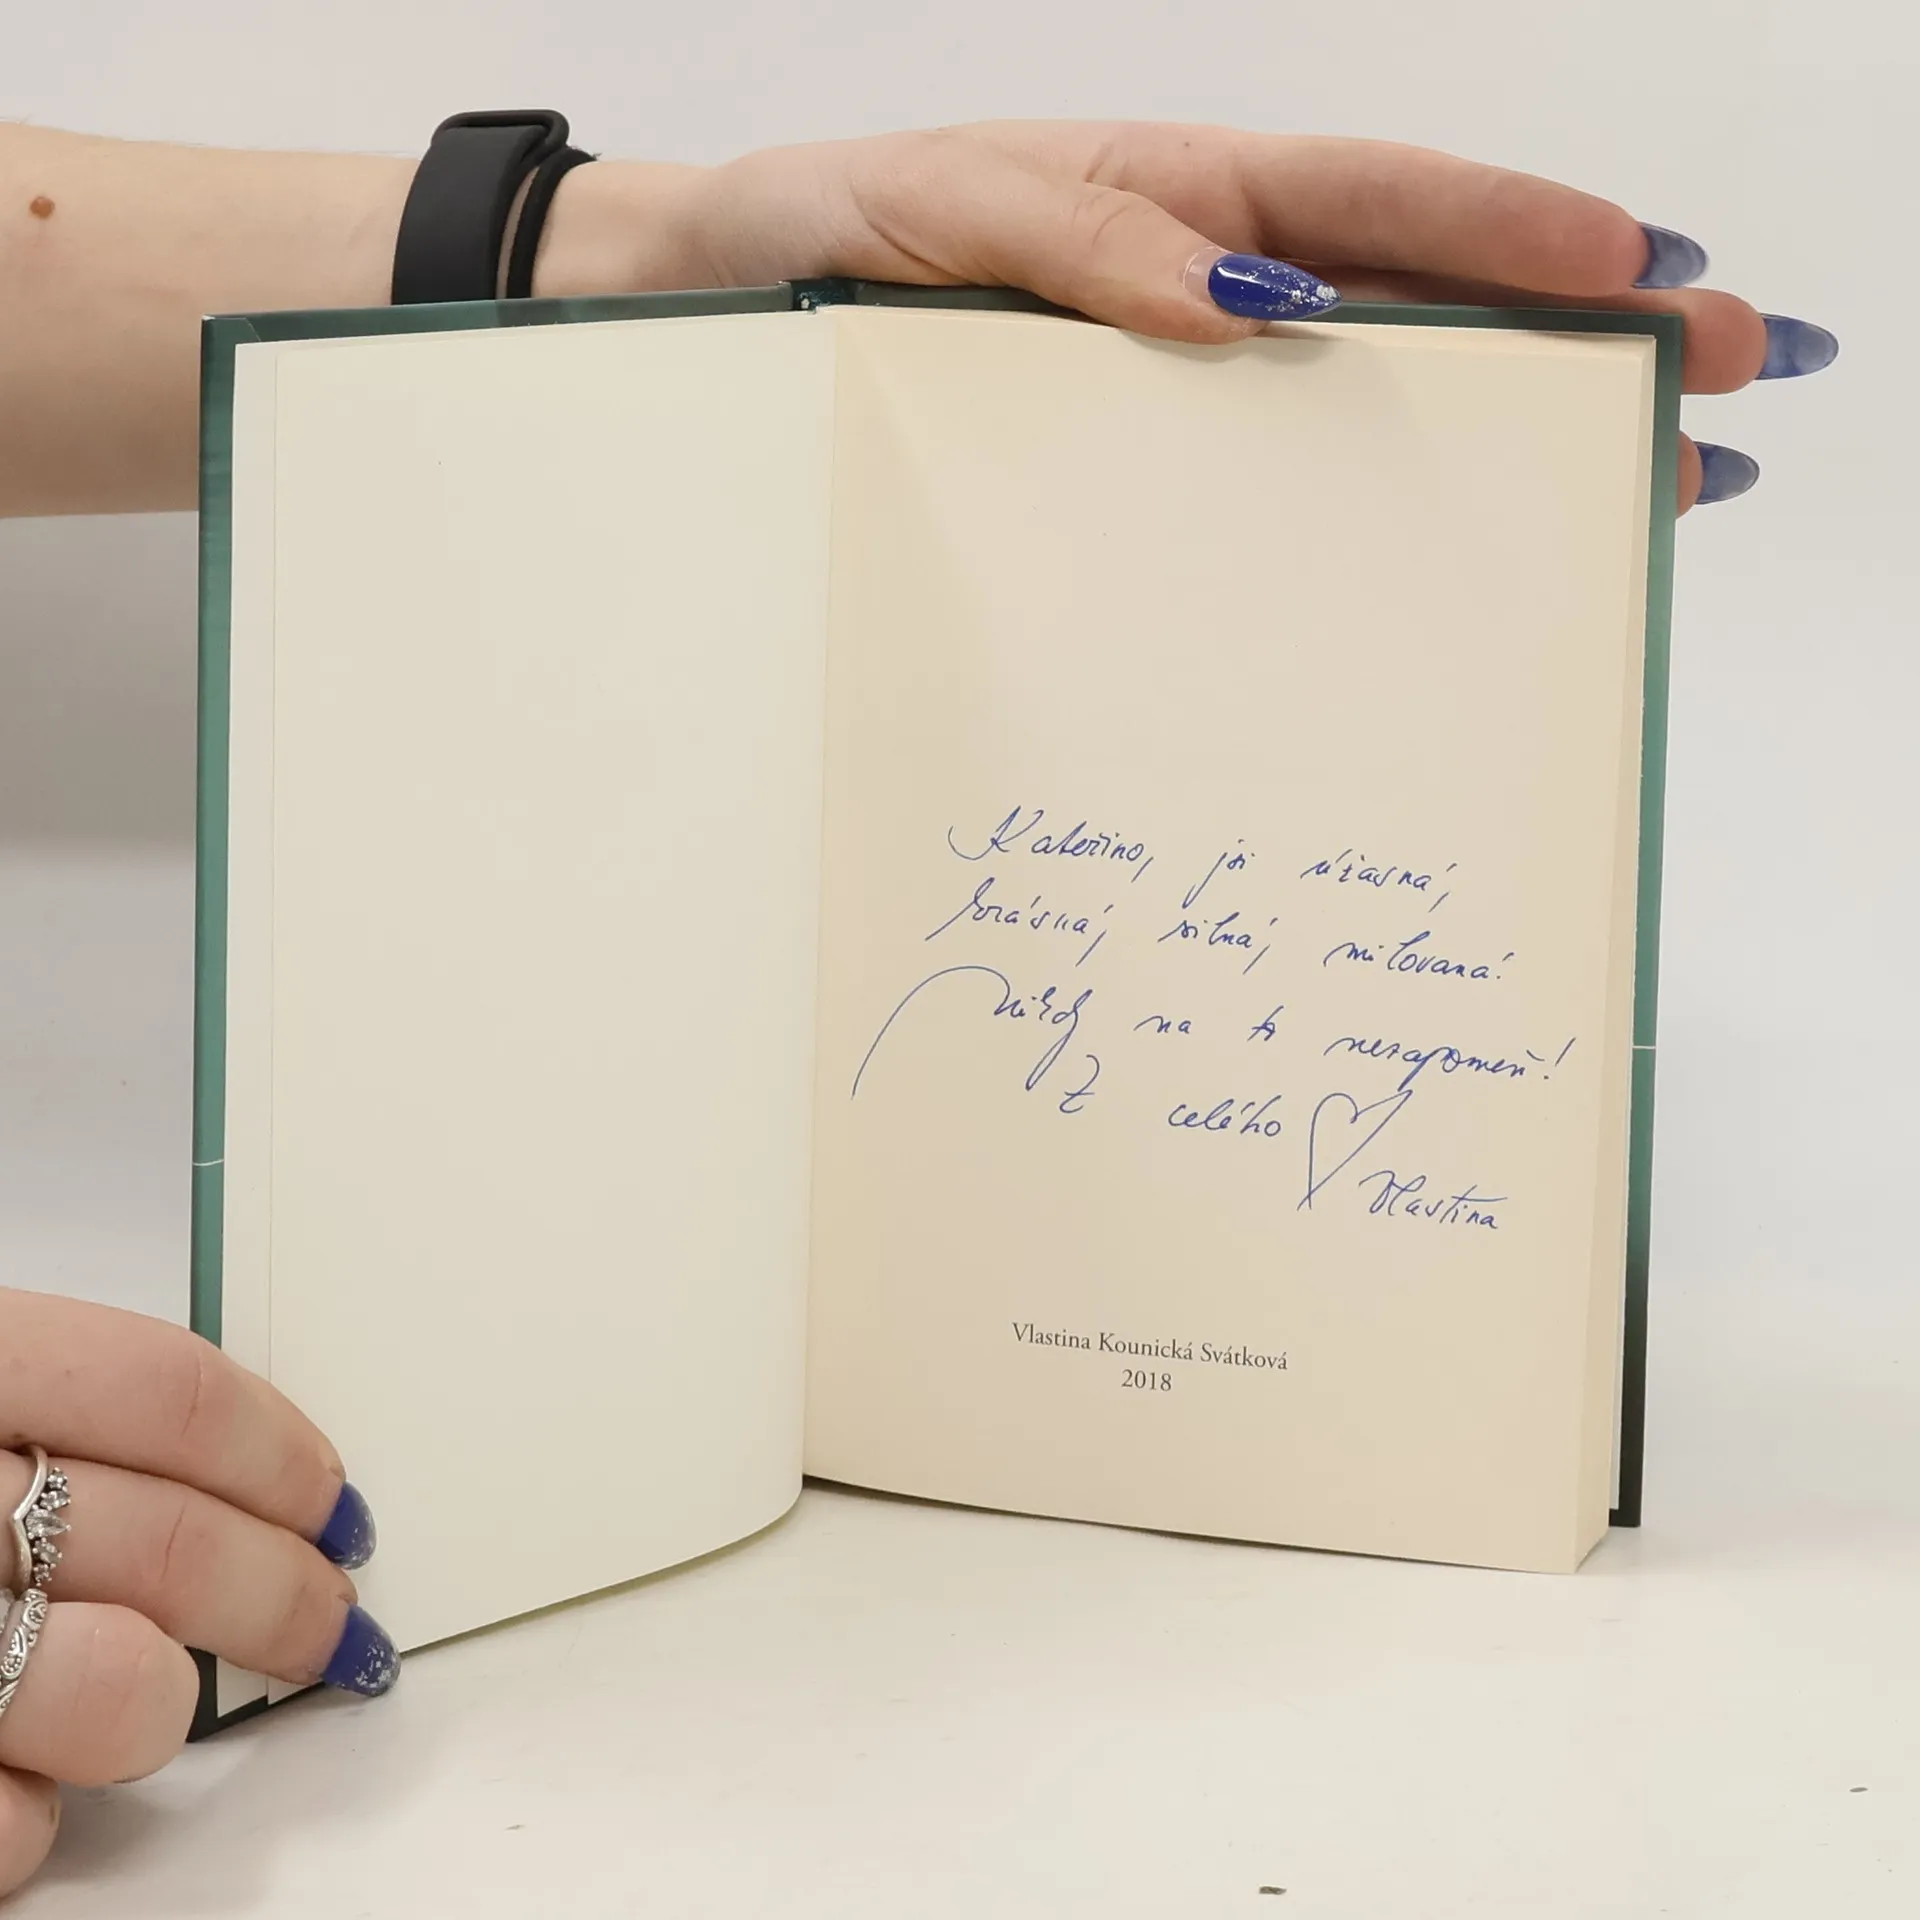 Kateřino, jsi úžasná,
krásná, silná, milovaná!
Nikdy na to nezapomeň!
Z celého ♡
Vlastina
Vlastina Kounická Svátková
2018